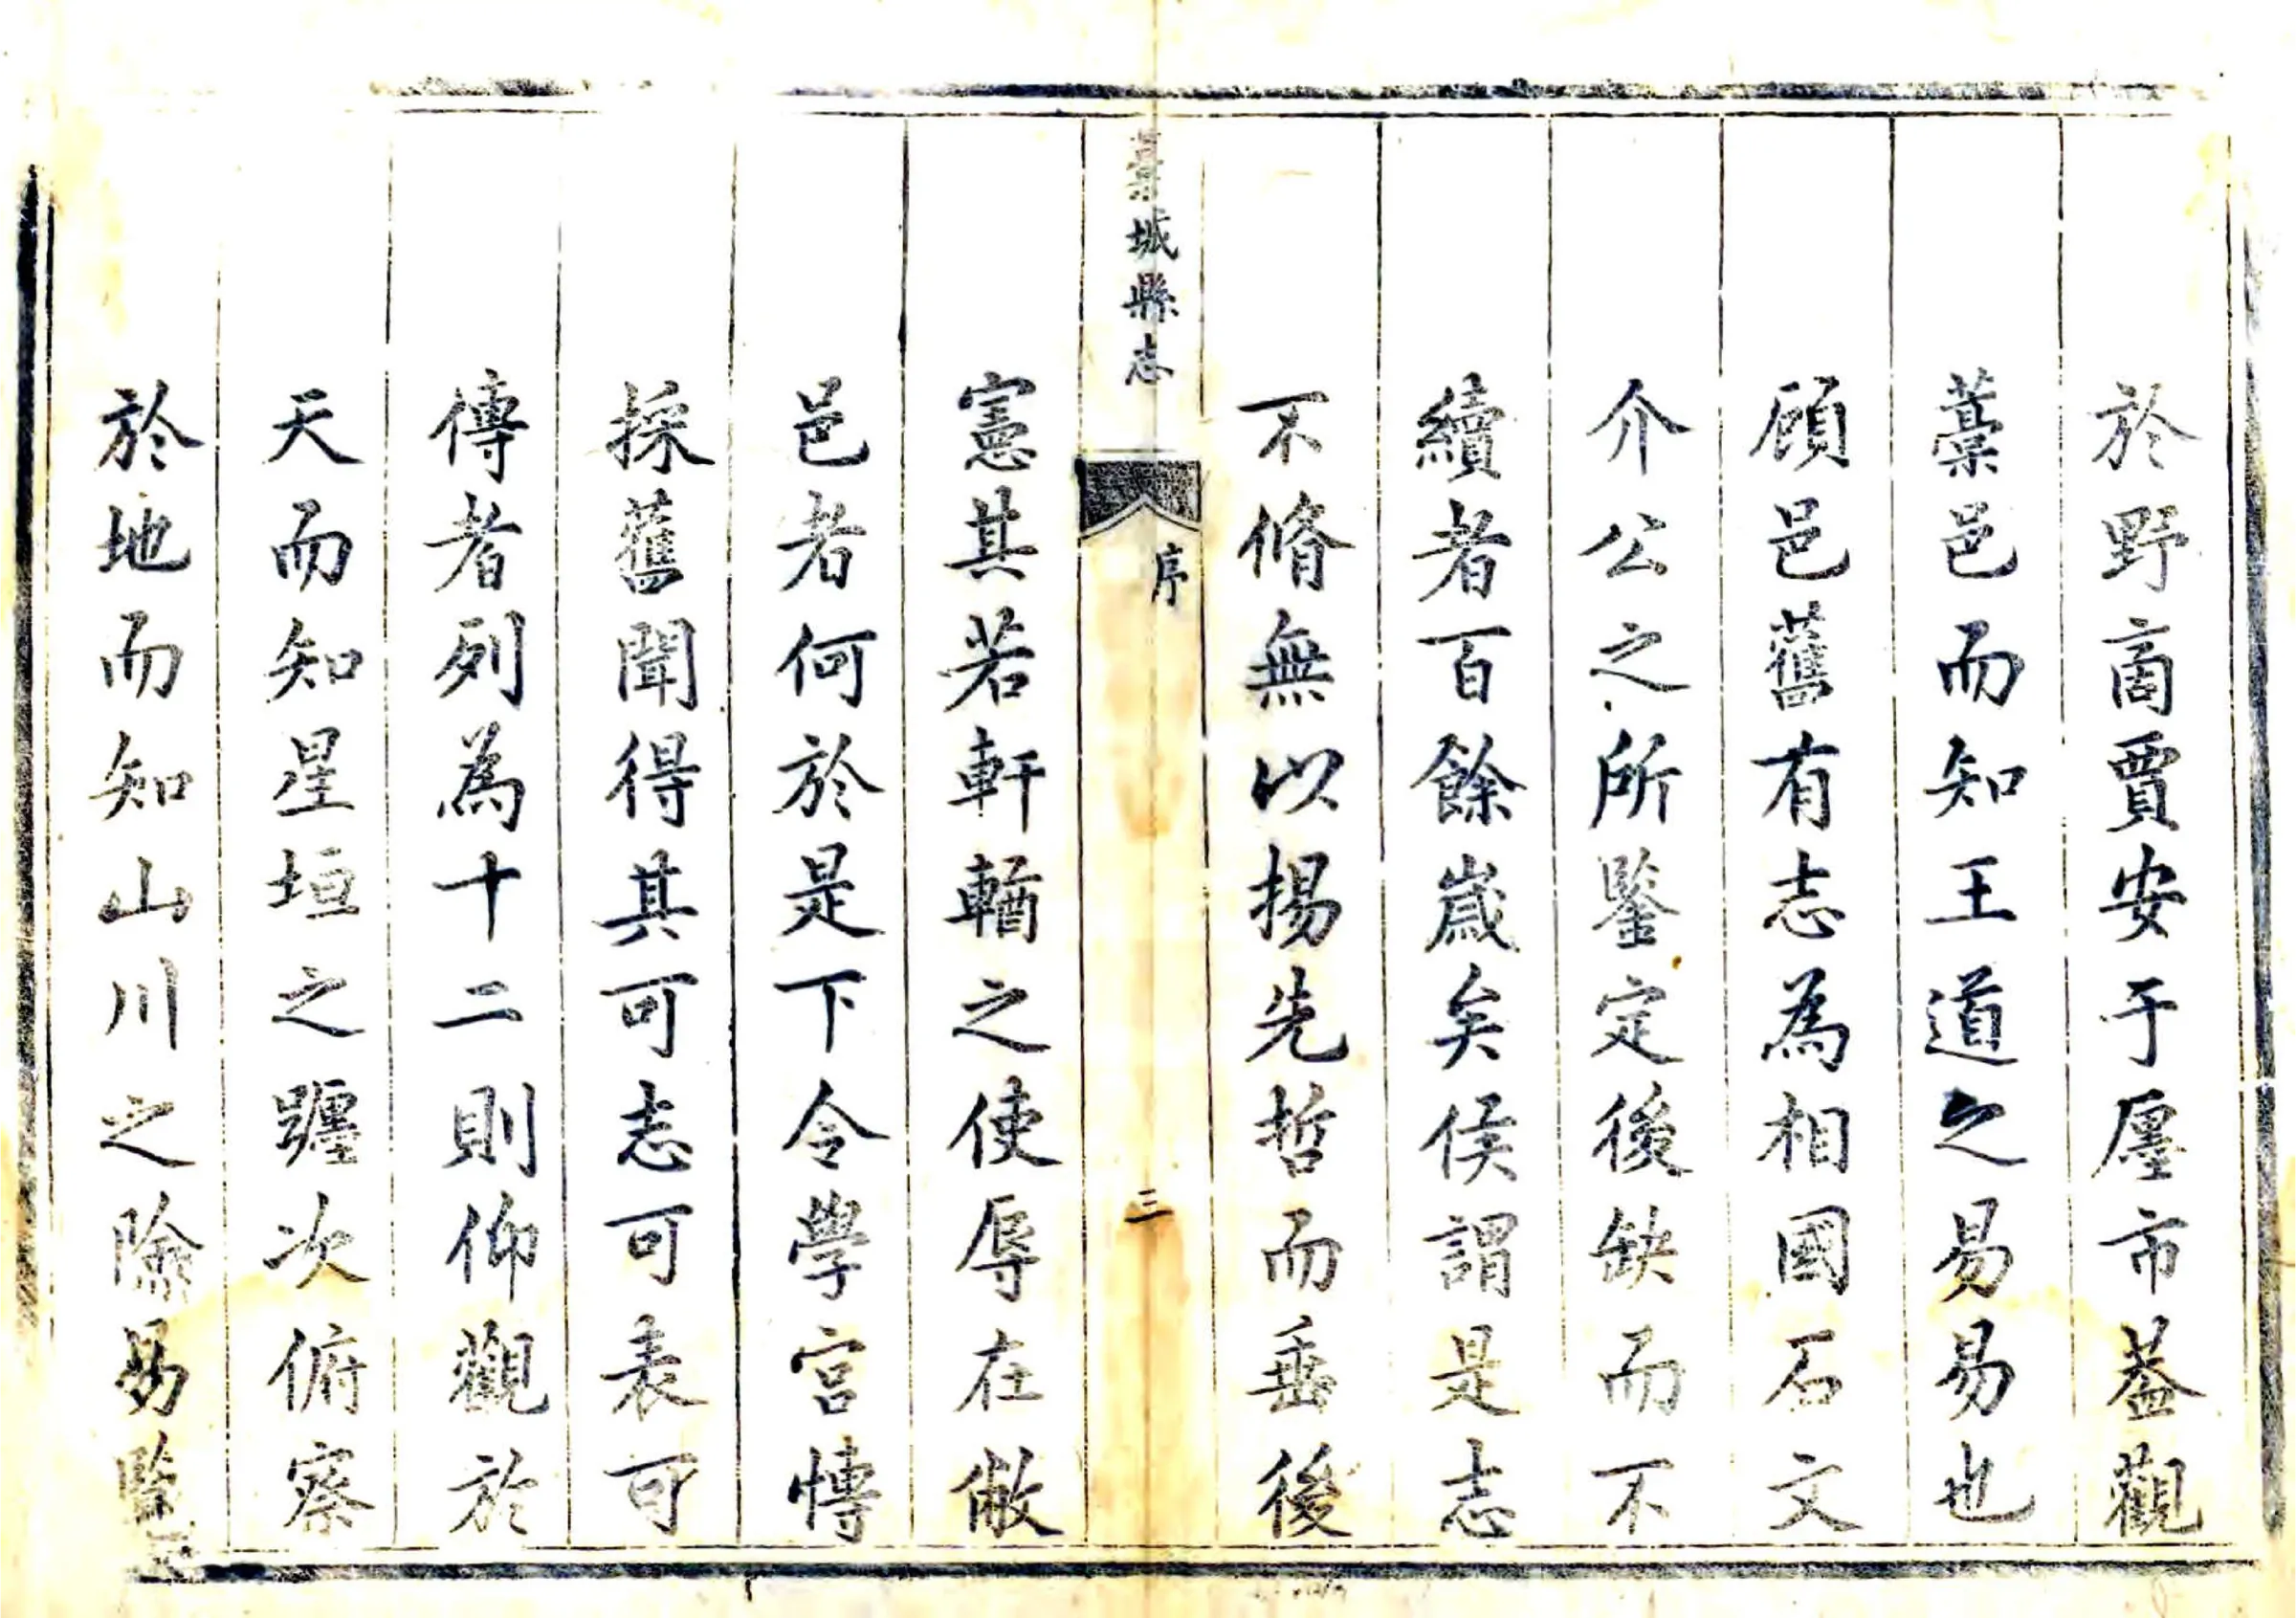 於野商賈安于廛市葢觀
藁邑而知王道之易易也
顧邑舊有志為相國石文
介公之所鑒定後缺而不
續者百餘歲矣侯謂是志
不脩無以揚先哲而垂後
藁城縣志
序
三
憲其若軒輶之使辱在敝
邑者何於是下令學宮愽
採舊聞得其可志可表可
傳者列為十二則仰觀於
天而知星垣之躔次俯察
於地而知山川之險易